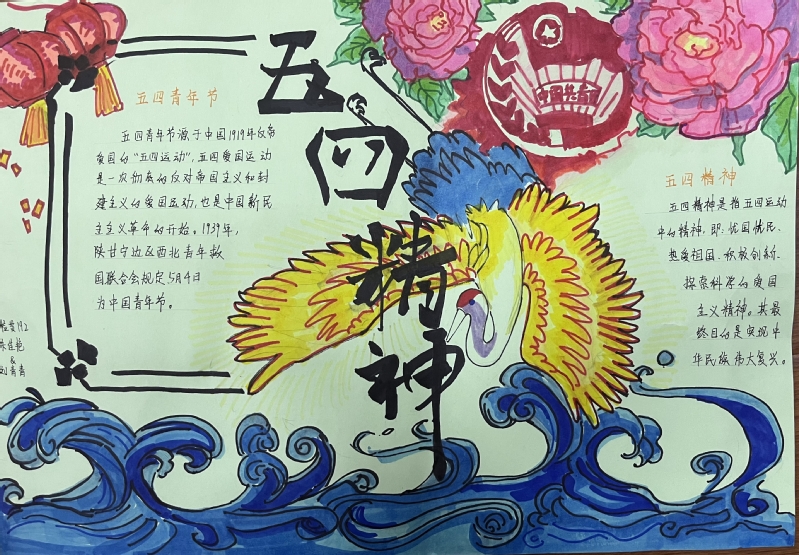 五四精神
五四青年节
五四青年节源于中国1919年反帝
爱国的“五四运动”，五四爱国运动
是一次彻底的反对帝国主义和封
建主义的爱国运动，也是中国新民
主主义革命的开始。1939年，
陕甘宁边区西北青年救
国联合会规定5月4日
为中国青年节。
五四精神
五四精神是指五四运动
中的精神，即：忧国忧民、
热爱祖国、积极创新、
探索科学的爱国
主义精神。其最
终目的是实现中
华民族伟大复兴。
192
&